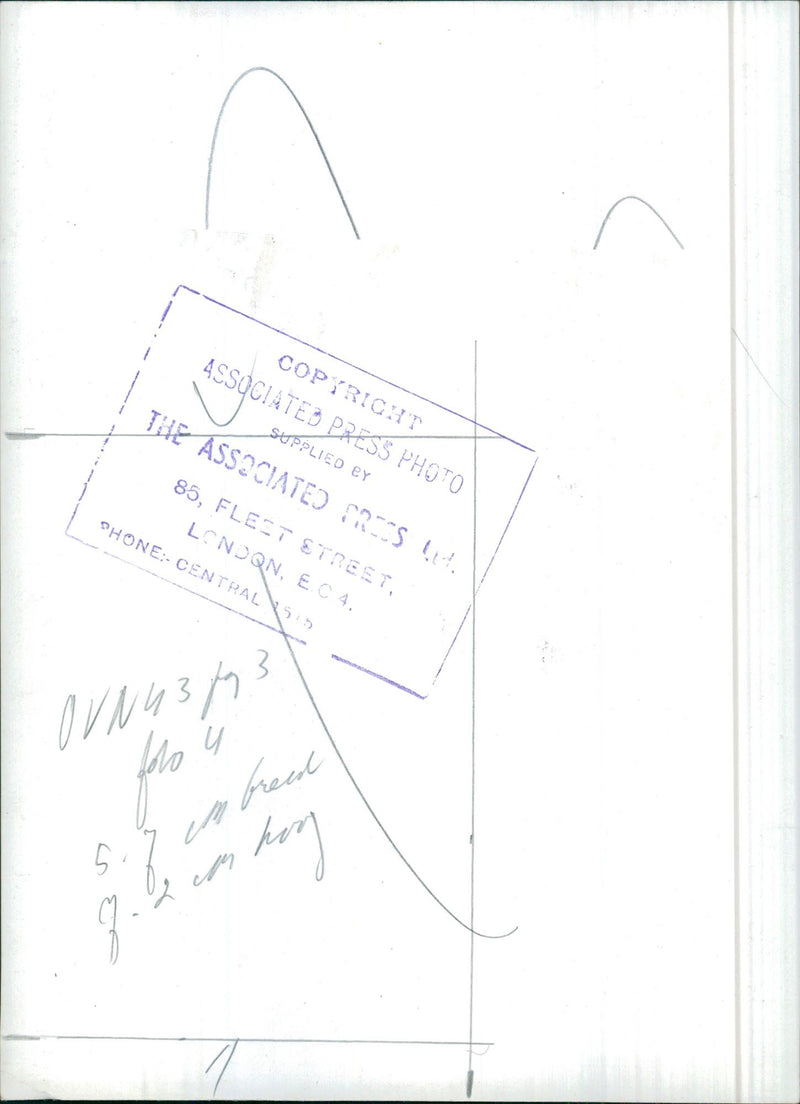 COPYRIGHT
ASSOCIATED PRESS PHOTO
SUPPLIED BY
THE ASSOCIATED PRESS Ltd.
85, FLEET STREET,
LONDON, E.C 4.
PHONE:- CENTRAL 1515
OVN43 pag 3
foto 4
5.7 cm breed
7.2 cm hoog